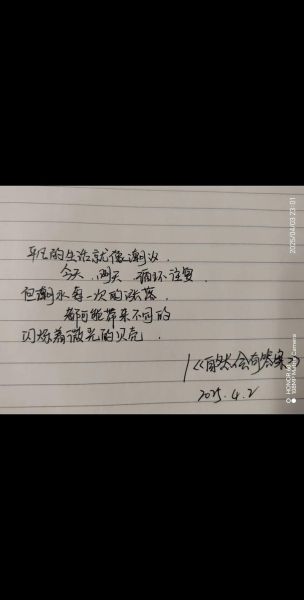 平凡的生活就像潮汐.
今天,明天 循环往复
但潮水每一次的涨落.
都可能带来不同的
闪烁着微光的贝壳.
/《自然会有答案》
2025.4.2
2025/04/03 23:01
HONOR X
108MP Matrix Camera